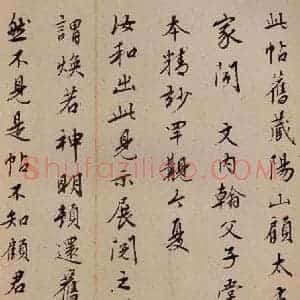 此帖舊藏陽山顧太
家問 文內翰父子嘗
本精妙罕覯今夏
汝和出此見示展閱之
謂煥若神明頓還舊
然不見是帖不知顧君
Shufaziliao.com